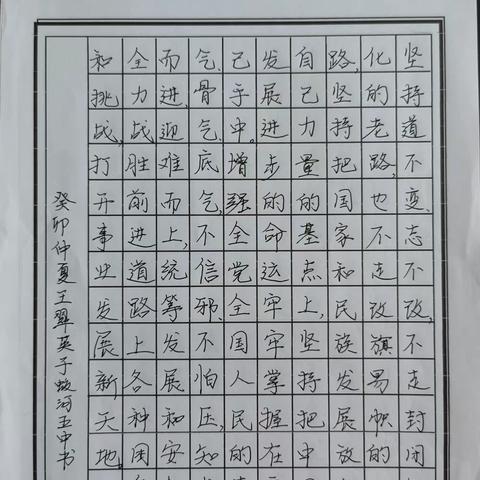 坚持道不变、志不改,不走封闭
化的老路,也不走改旗易帜的
路,坚持把国家和民族发展放
自己力量的基点上,坚持把中
发展进步的命运牢牢掌握在
己手中。增强全党全国人民的
气、骨气、底气,不信邪、不怕压,知
而进,迎难而上,统筹发展和安
全力战胜前进道路上各种困
和挑战,打开事业发展新天地。
癸卯仲夏王翠英于蛟河五中书